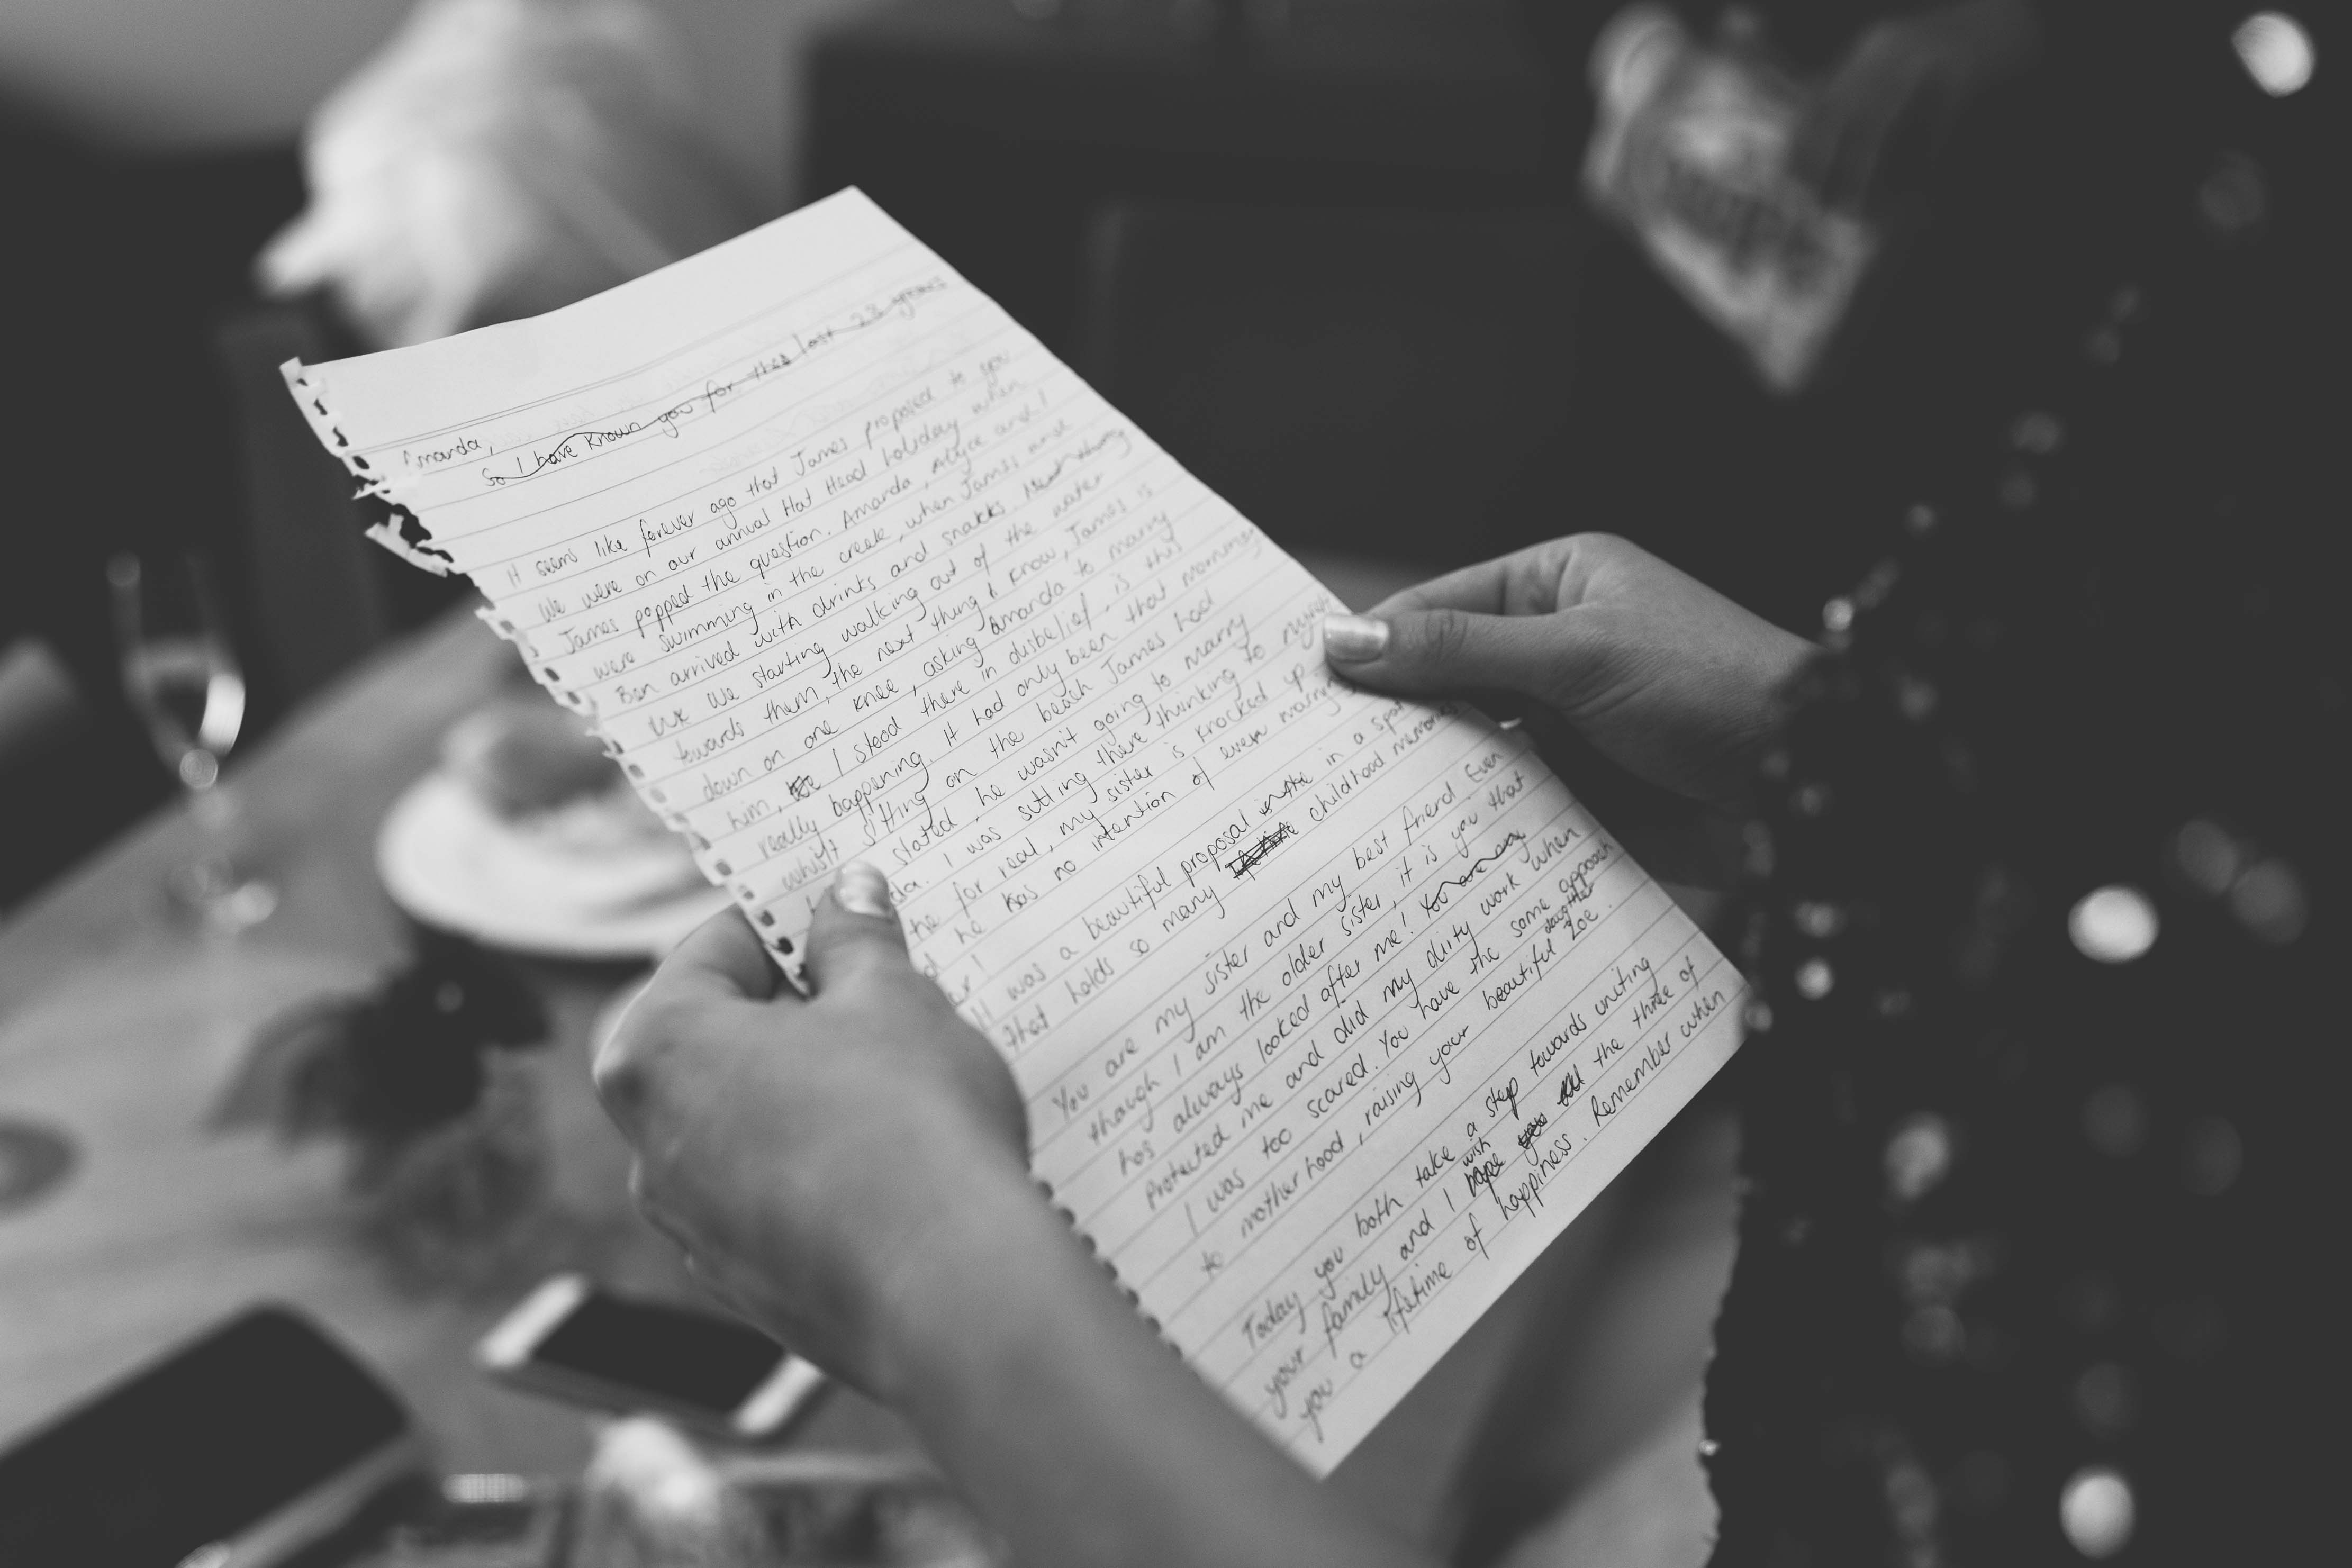 Amanda,
So I have known you for thes last 28 years
It seems like forever ago that James proposed to you
We were on our annual Hat Head holiday when
James popped the question. Amanda, Alyce and I
were swimming in the creek, when James and
Ben arrived with drinks and snacks.
We starting walking out of the water
towards them, the next thing I know, James is
down on one knee, asking Amanda to marry
him, I stood there in disbelief, is this
really happening. It had only been that morning
whilst sitting on the beach James had
stated, he wasn't going to marry
da. I was sitting there thinking to myself
he for real, my sister is knocked up
he has no intention of even marrying
er!
It was a beautiful proposal in the in a spot
that holds so many childhood memories
You are my sister and my best friend. Even
though I am the older sister, it is you that
has always looked after me! You are my
Protected me and did my dirty work when
I was too scared. You have the same approach
to motherhood, raising your beautiful daughter Zoe.
Today you both take a step towards uniting
your family and I hope wish you all the three of
you a lifetime of happiness. Remember when